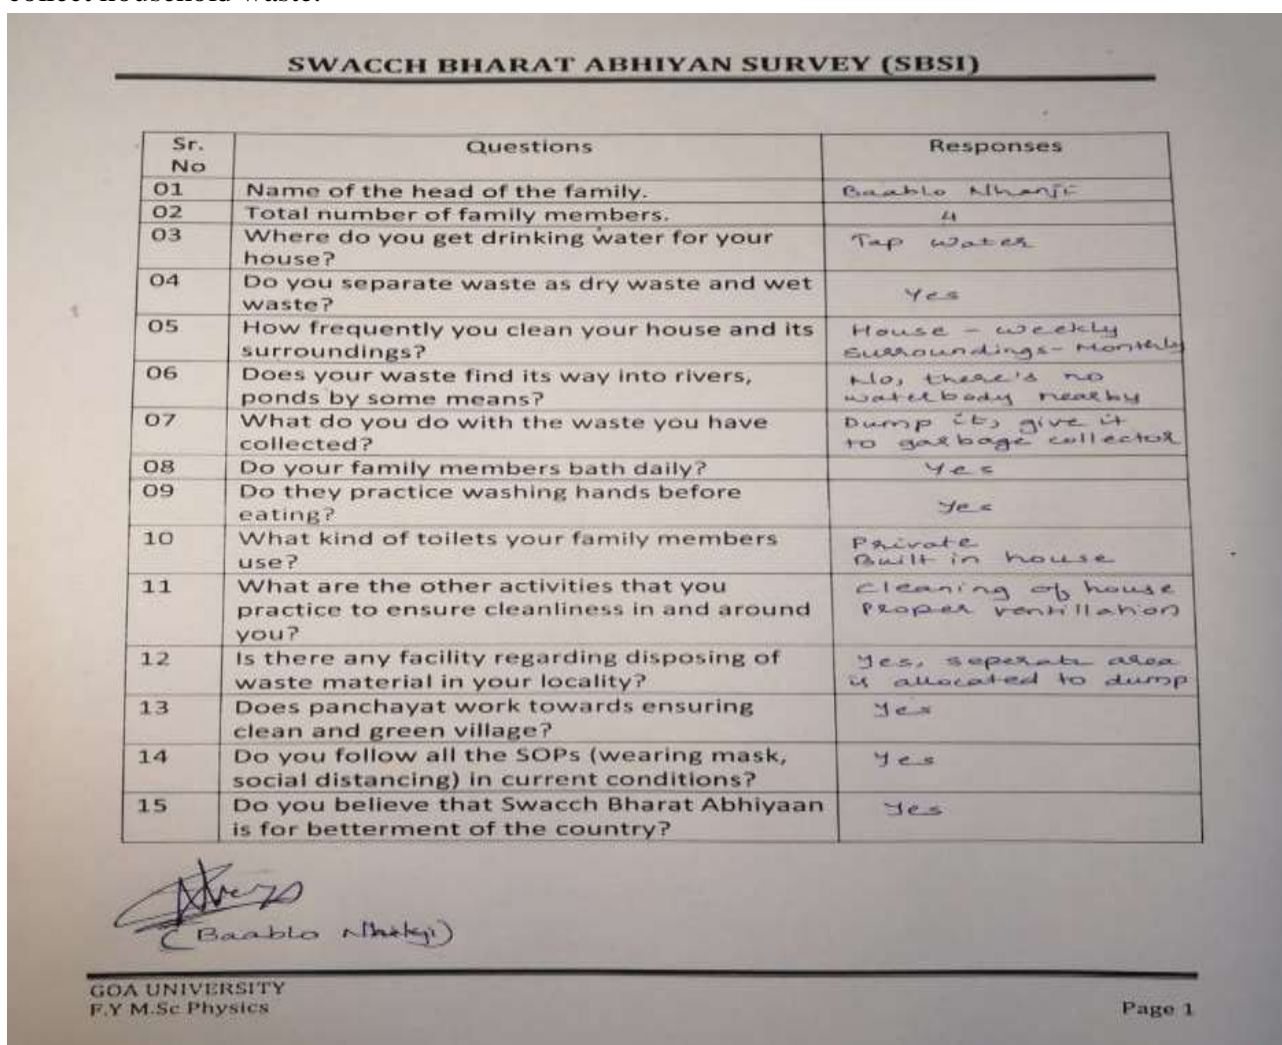 collect household waste.
SWACCH BHARAT ABHIYAN SURVEY (SBSI)
Sr. No Questions Responses
01 Name of the head of the family. Baablo
02 Total number of family members. 4
03 Where do you get drinking water for your house? Tap water
04 Do you separate waste as dry waste and wet waste? Yes
05 How frequently you clean your house and its surroundings? House - weekly Surroundings - Monthly
06 Does your waste find its way into rivers, ponds by some means? No, there's no waterbody nearby
07 What do you do with the waste you have collected? Dump it, give it to garbage collector
08 Do your family members bath daily? Yes
09 Do they practice washing hands before eating? Yes
10 What kind of toilets your family members use? Private Built in house
11 What are the other activities that you practice to ensure cleanliness in and around you? Cleaning of house Proper ventillation
12 Is there any facility regarding disposing of waste material in your locality? Yes, seperate area is allocated to dump
13 Does panchayat work towards ensuring clean and green village? Yes
14 Do you follow all the SOPs (wearing mask, social distancing) in current conditions? Yes
15 Do you believe that Swacch Bharat Abhiyaan is for betterment of the country? Yes
(Baablo
GOA UNIVERSITY
F.Y M.Sc Physics Page 1